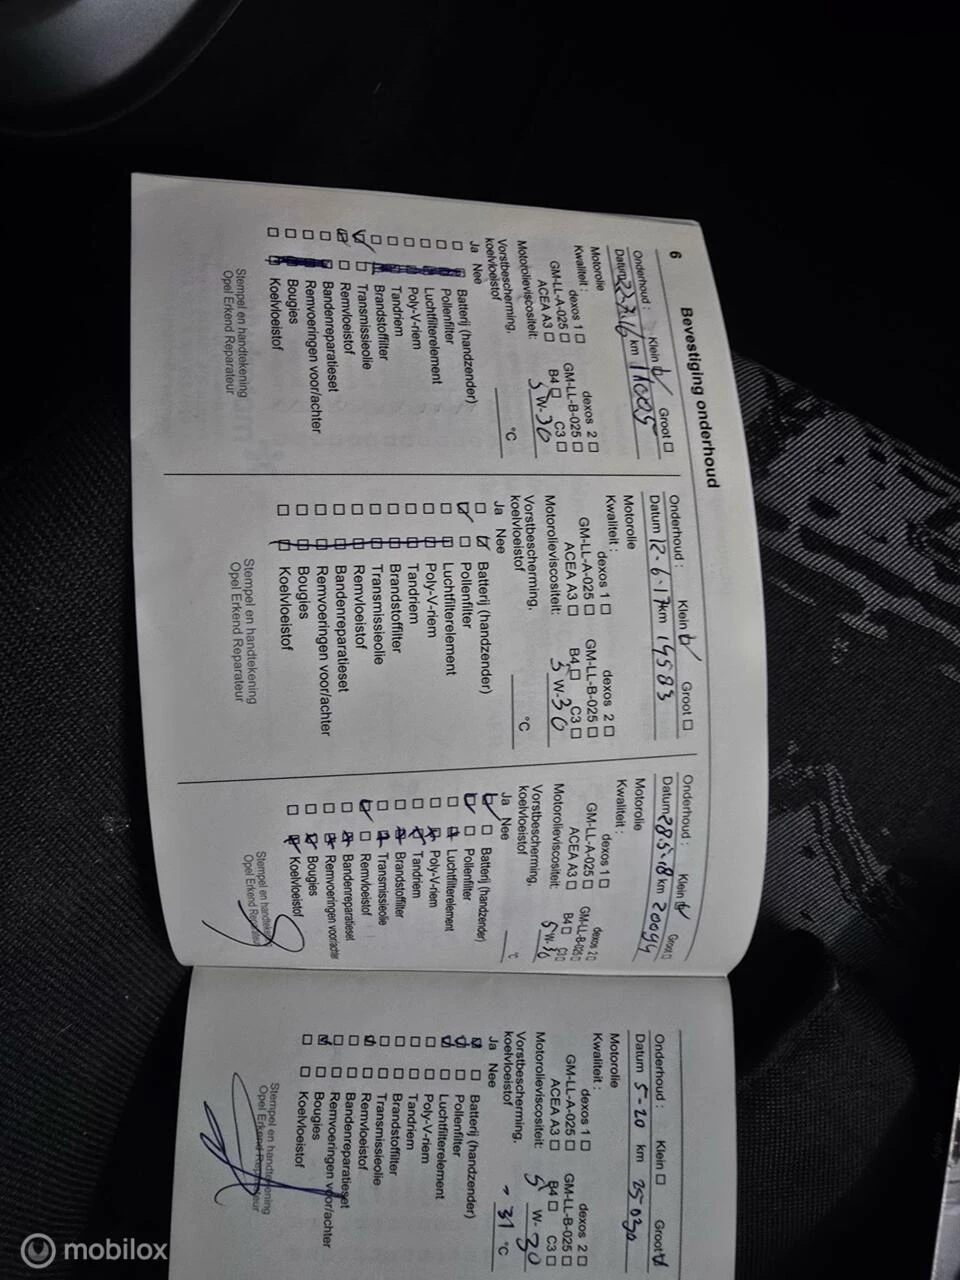 6
Bevestiging onderhoud
Onderhoud : Klein Groot
Datum 22.7.16 km 11005
Motorolie
Kwaliteit : dexos 1 dexos 2
GM-LL-A-025 GM-LL-B-025
ACEA A3 B4 C3
Motorolieviscositeit: 5 W-30
Vorstbescherming,
koelvloeistof °C
Ja Nee
Batterij (handzender)
Pollenfilter
Luchtfilterelement
Poly-V-riem
Tandriem
Brandstoffilter
Transmissieolie
Remvloeistof
Bandenreparatieset
Remvoeringen voor/achter
Bougies
Koelvloeistof
Stempel en handtekening
Opel Erkend Reparateur
Onderhoud : Klein Groot
Datum 12-6-17 km 19583
Motorolie
Kwaliteit : dexos 1 dexos 2
GM-LL-A-025 GM-LL-B-025
ACEA A3 B4 C3
Motorolieviscositeit: 5 W-30
Vorstbescherming,
koelvloeistof °C
Ja Nee
Batterij (handzender)
Pollenfilter
Luchtfilterelement
Poly-V-riem
Tandriem
Brandstoffilter
Transmissieolie
Remvloeistof
Bandenreparatieset
Remvoeringen voor/achter
Bougies
Koelvloeistof
Stempel en handtekening
Opel Erkend Reparateur
Onderhoud : Klein Groot
Datum 28.5-18 km 20094
Motorolie
Kwaliteit : dexos 1 dexos 2
GM-LL-A-025 GM-LL-B-025
ACEA A3 B4 C3
Motorolieviscositeit: 5 W-30
Vorstbescherming,
koelvloeistof °C
Ja Nee
Batterij (handzender)
Pollenfilter
Luchtfilterelement
Poly-V-riem
Tandriem
Brandstoffilter
Transmissieolie
Remvloeistof
Bandenreparatieset
Remvoeringen voor/achter
Bougies
Koelvloeistof
Stempel en handtekening
Opel Erkend Reparateur
Onderhoud : Klein Groot
Datum 5-20 km 25030
Motorolie
Kwaliteit : dexos 1 dexos 2
GM-LL-A-025 GM-LL-B-025
ACEA A3 B4 C3
Motorolieviscositeit: 5 W-30
Vorstbescherming,
koelvloeistof - 31 °C
Ja Nee
Batterij (handzender)
Pollenfilter
Luchtfilterelement
Poly-V-riem
Tandriem
Brandstoffilter
Transmissieolie
Remvloeistof
Bandenreparatieset
Remvoeringen voor/achter
Bougies
Koelvloeistof
Stempel en handtekening
Opel Erkend Reparateur
mobilox